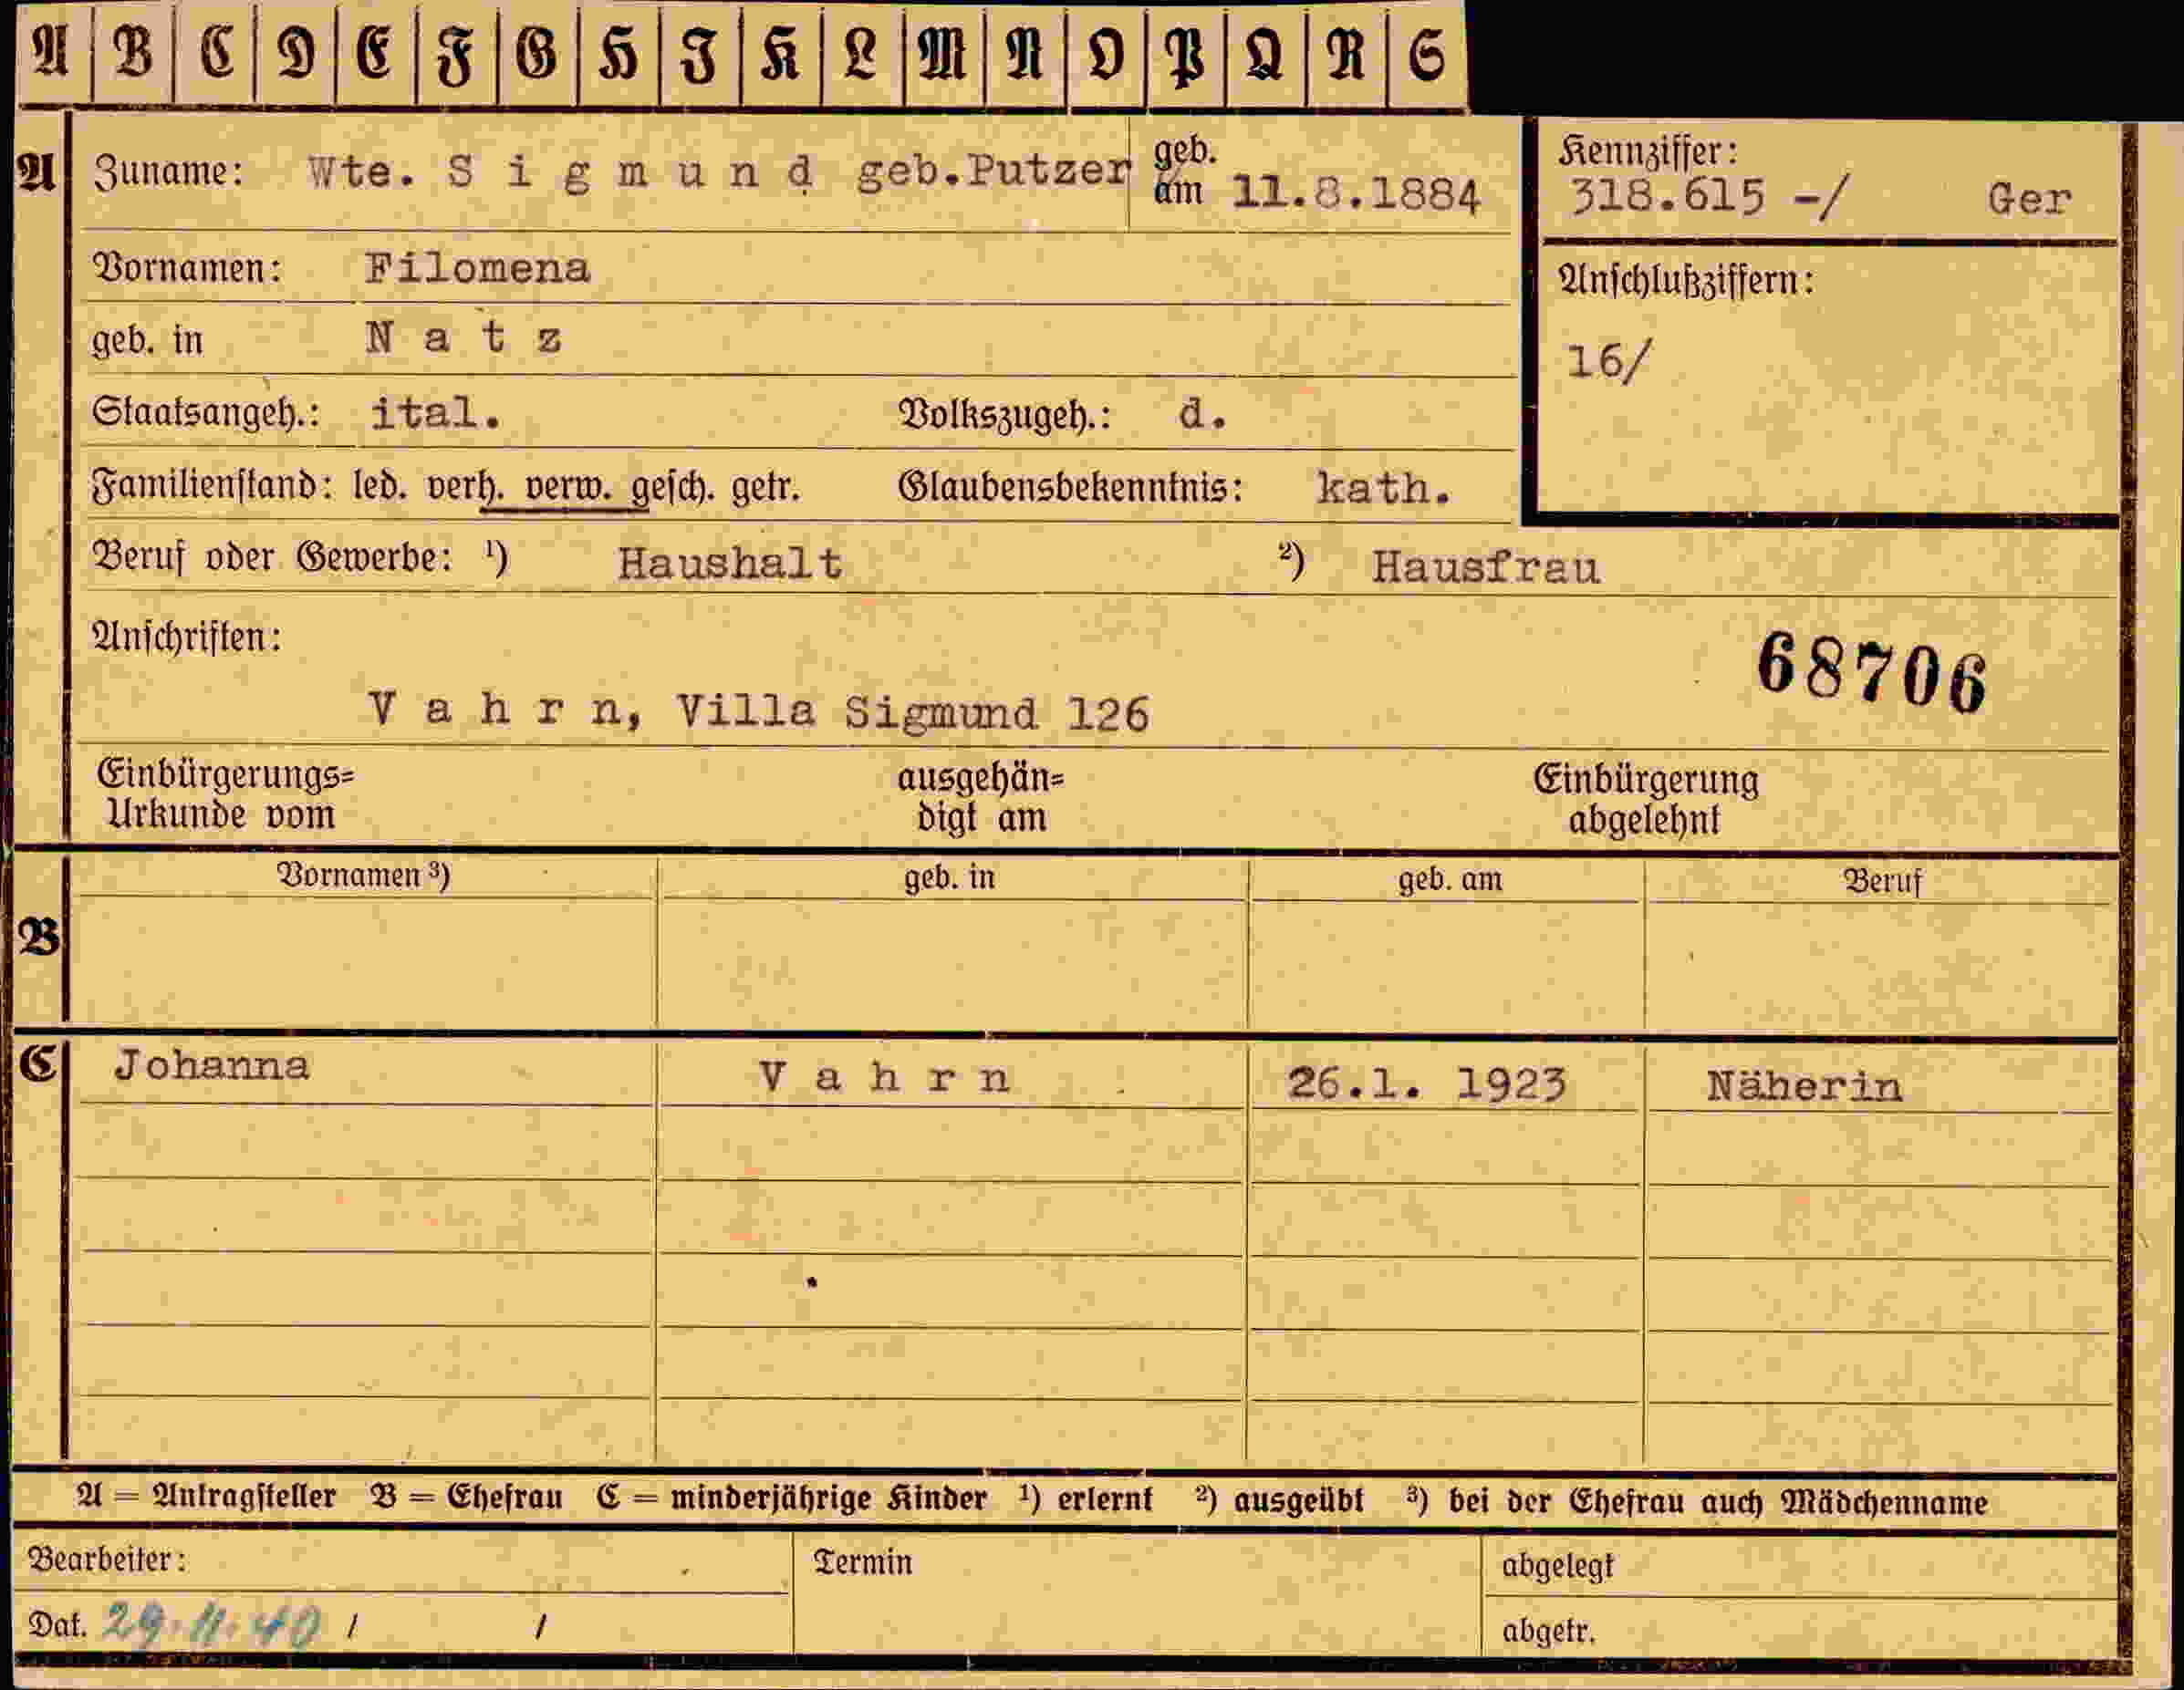 A B C D E F G H J K L M N O P Q R S
A Zuname: Wte. S i g m u n d geb.Putzer geb. am 11.8.1884
Kennziffer:
318.615 -/ Ger
Vornamen: Filomena
Anschlußziffern:
geb. in N a t z
16/
Staatsangeh.: ital. Volkszugeh.: d.
Familienstand: led. verh. verw. gesch. getr. Glaubensbekenntnis: kath.
Beruf oder Gewerbe: ¹) Haushalt ²) Hausfrau
Anschriften:
68706
V a h r n, Villa Sigmund 126
Einbürgerungs= ausgehän= Einbürgerung
Urkunde vom digt am abgelehnt
Vornamen ³) geb. in geb. am Beruf
B
C Johanna V a h r n 26.1. 1923 Näherin
A = Antragsteller B = Ehefrau C = minderjährige Kinder ¹) erlernt ²) ausgeübt ³) bei der Ehefrau auch Mädchenname
Bearbeiter: Termin abgelegt
Dat. 29.11.40 / / abgetr.